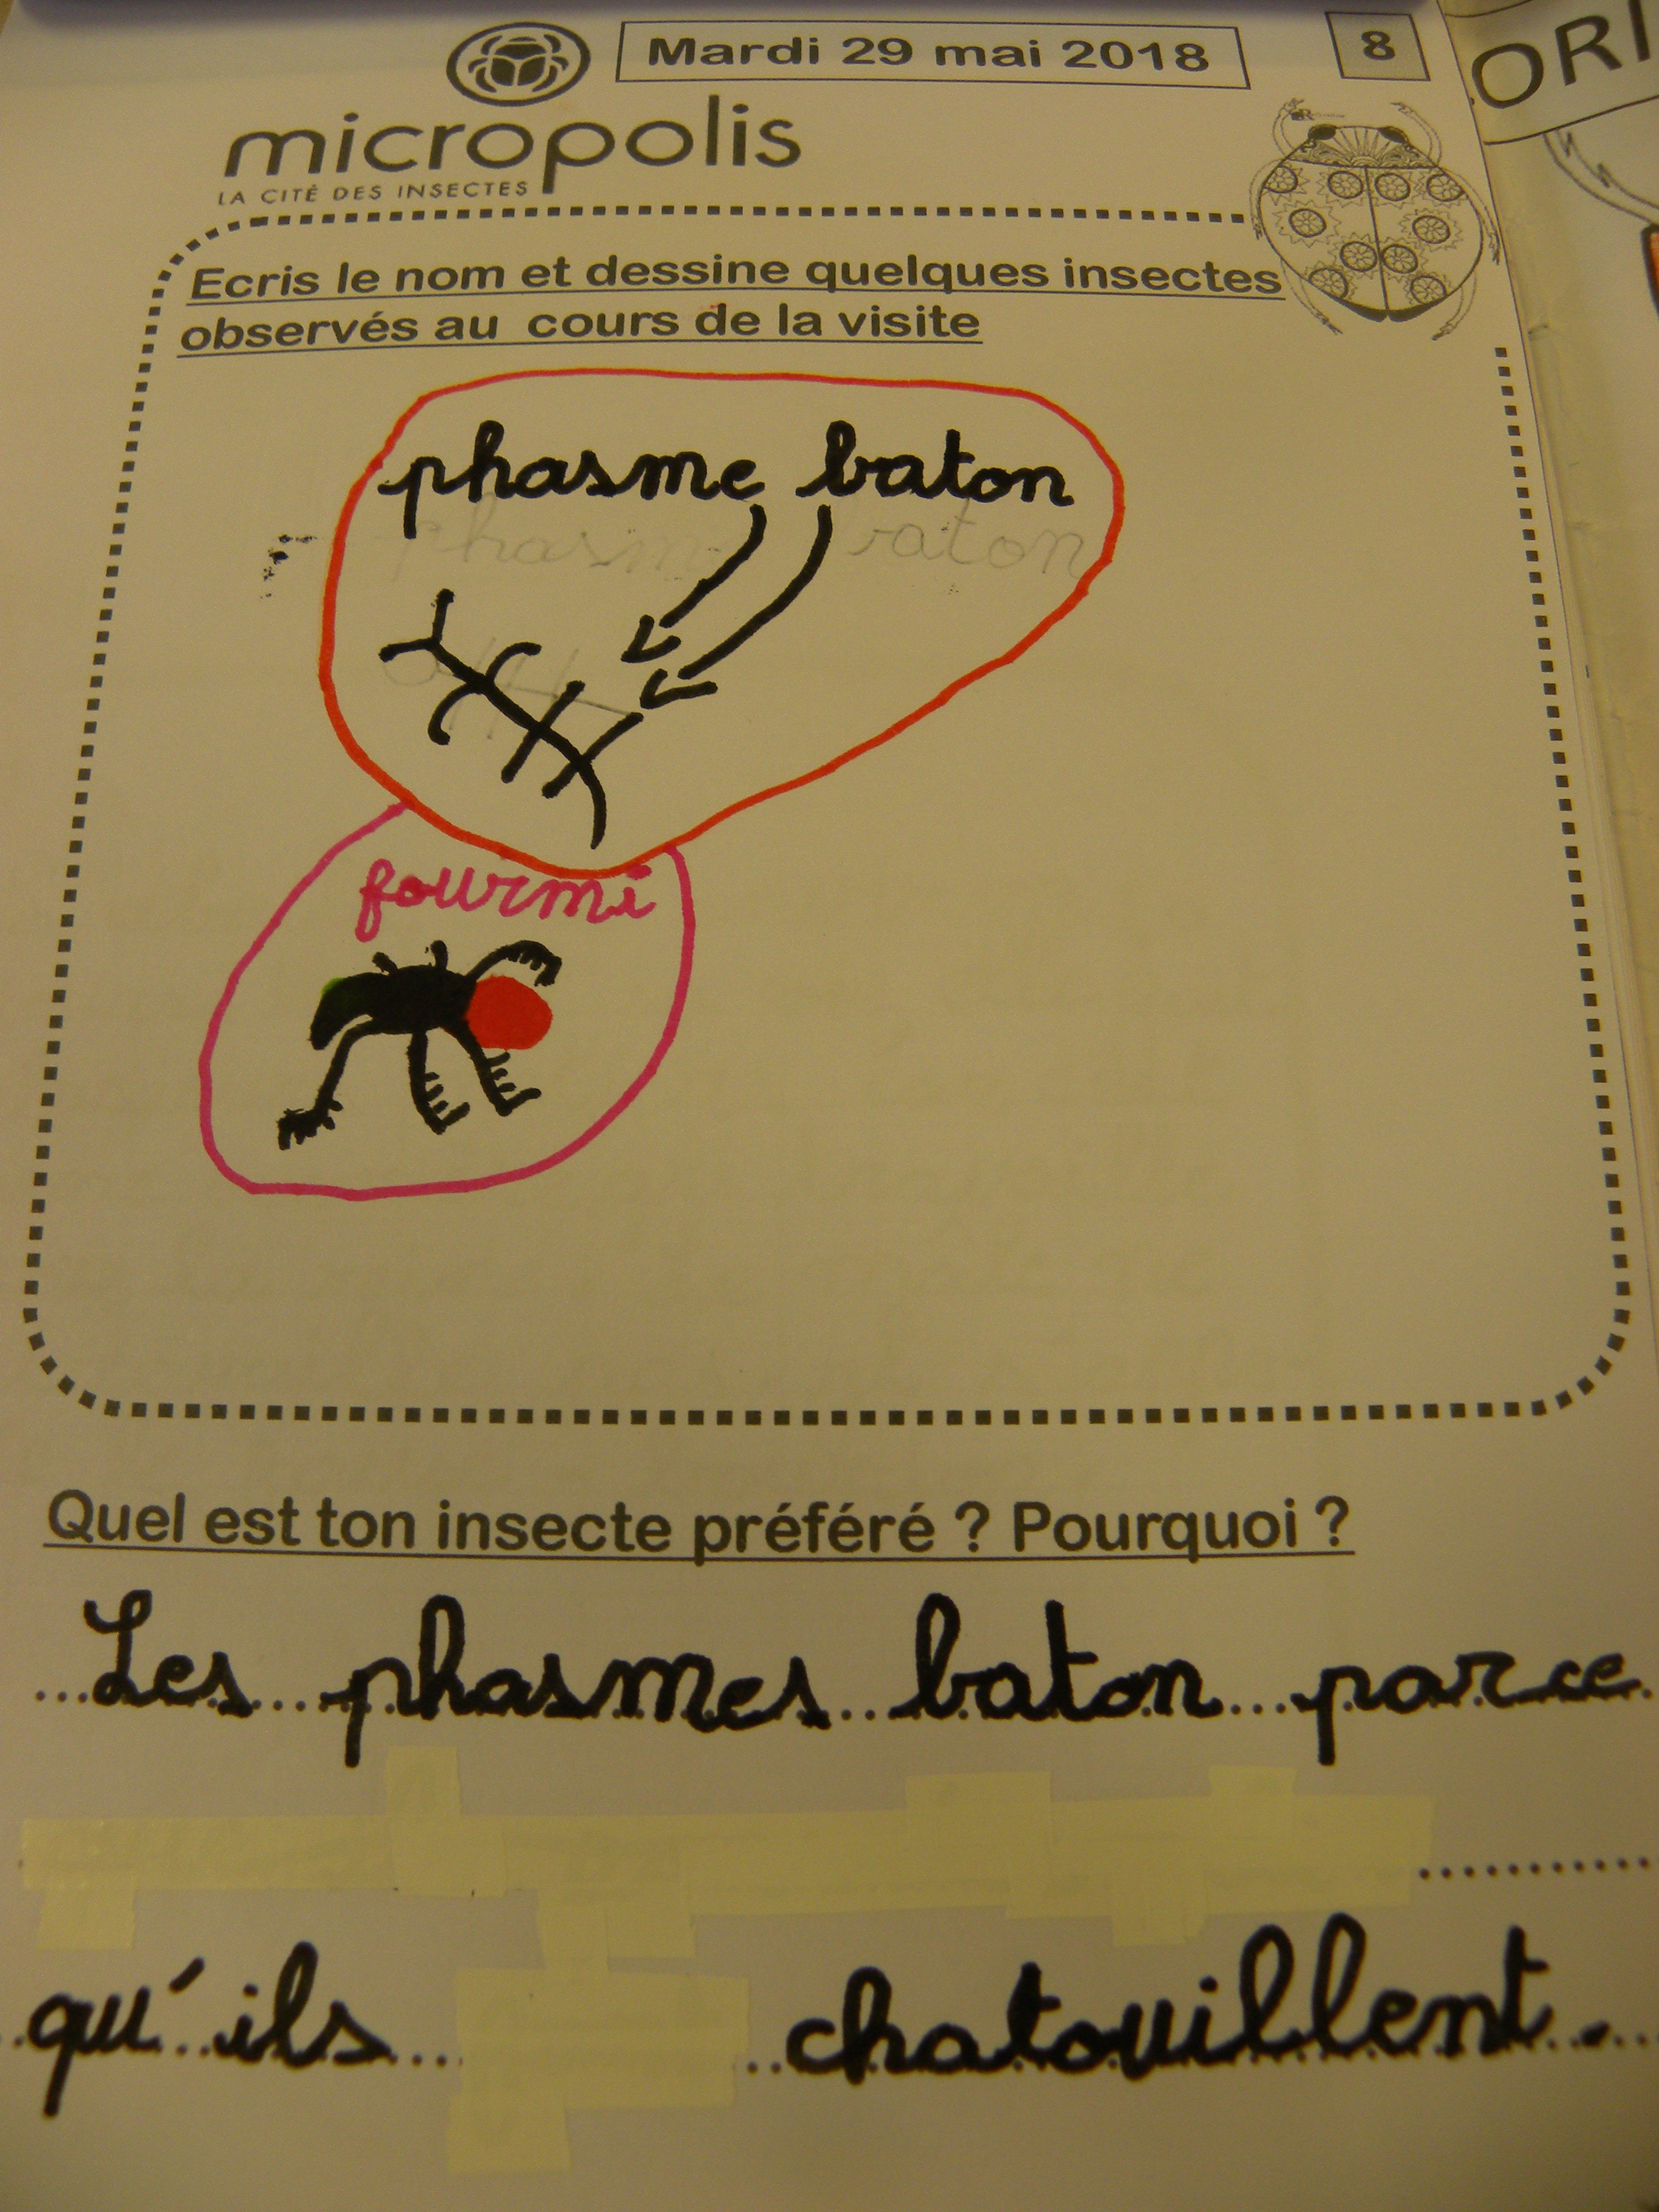 Mardi 29 mai 2018
8
ORI
micropolis
LA CITÉ DES INSECTES
Ecris le nom et dessine quelques insectes
observés au cours de la visite
phasme baton
phasme baton
fourmi
Quel est ton insecte préféré ? Pourquoi ?
...Les...phasmes...baton...parce.
...........
.qu'..ils... ..chatouillent.....